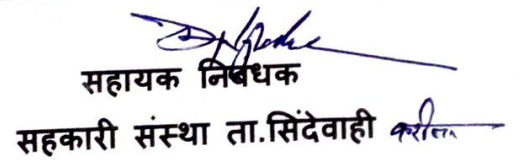 सहायक निबंधक
सहकारी संस्था ता.सिंदेवाही करीता